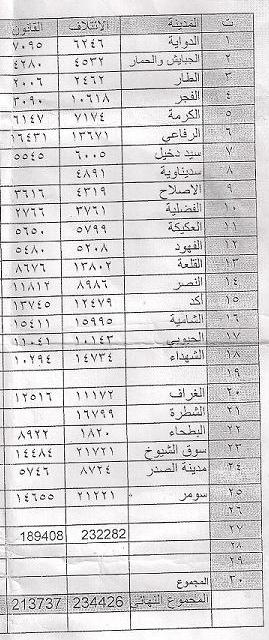 ت المدينة الائتلاف القانون
١ الدواية ٦٢٤٦ ٧٠٩٥
٢ الجبايش والحمار ٤٥٣٢ ٤٢٨٠
٣ الطار ٢٤٦٢ ٢٠٠٦
٤ الفجر ١٠٦١٨ ٣٠٩٠
٥ الكرمة ٧١٧٤ ٦١٤٧
٦ الرفاعي ١٣٦٧١ ١٦٤٣١
٧ سيد دخيل ٦٠٠٥ ٥٥٤٥
٨ سديناوية ٤٨٩١
٩ الاصلاح ٤٣١٩ ٣٦١٦
١٠ الفضلية ٣٧٦١ ٢٧٦٦
١١ العكيكة ٥٧٩٩ ٥٦٥٠
١٢ الفهود ٥٢٠٨ ٥٤٨٠
١٣ القلعة ١٣٨٠٢ ٨٦٧٦
١٤ النصر ٨٩٨٦ ١١٨١٢
١٥ أكد ١٢٤٧٩ ١٣٧٤٥
١٦ الشامية ١٥٩٩٥ ١٥٤١١
١٧ الحبوبي ١٠١٤٣ ١١٠٤١
١٨ الشهداء ١٤٧٣٤ ١٠٢٩٤
١٩
٢٠ الغراف ١١١٧٢ ١٢٥١٦
٢١ الشطرة ١٦٧٩٩
٢٢ البطحاء ١٨٢٠ ٨٩٢٢
٢٣ سوق الشيوخ ٢١٧٢١ ١٤٤٨٤
٢٤ مدينة الصدر ٨٧٢٤ ٥٧٤٦
٢٥ سومر ٢١٢٢١ ١٤٦٥٥
٢٦
٢٧ 232282 189408
٢٨
٢٩
٣٠ المجموع
المجموع النهائي 234426 213737